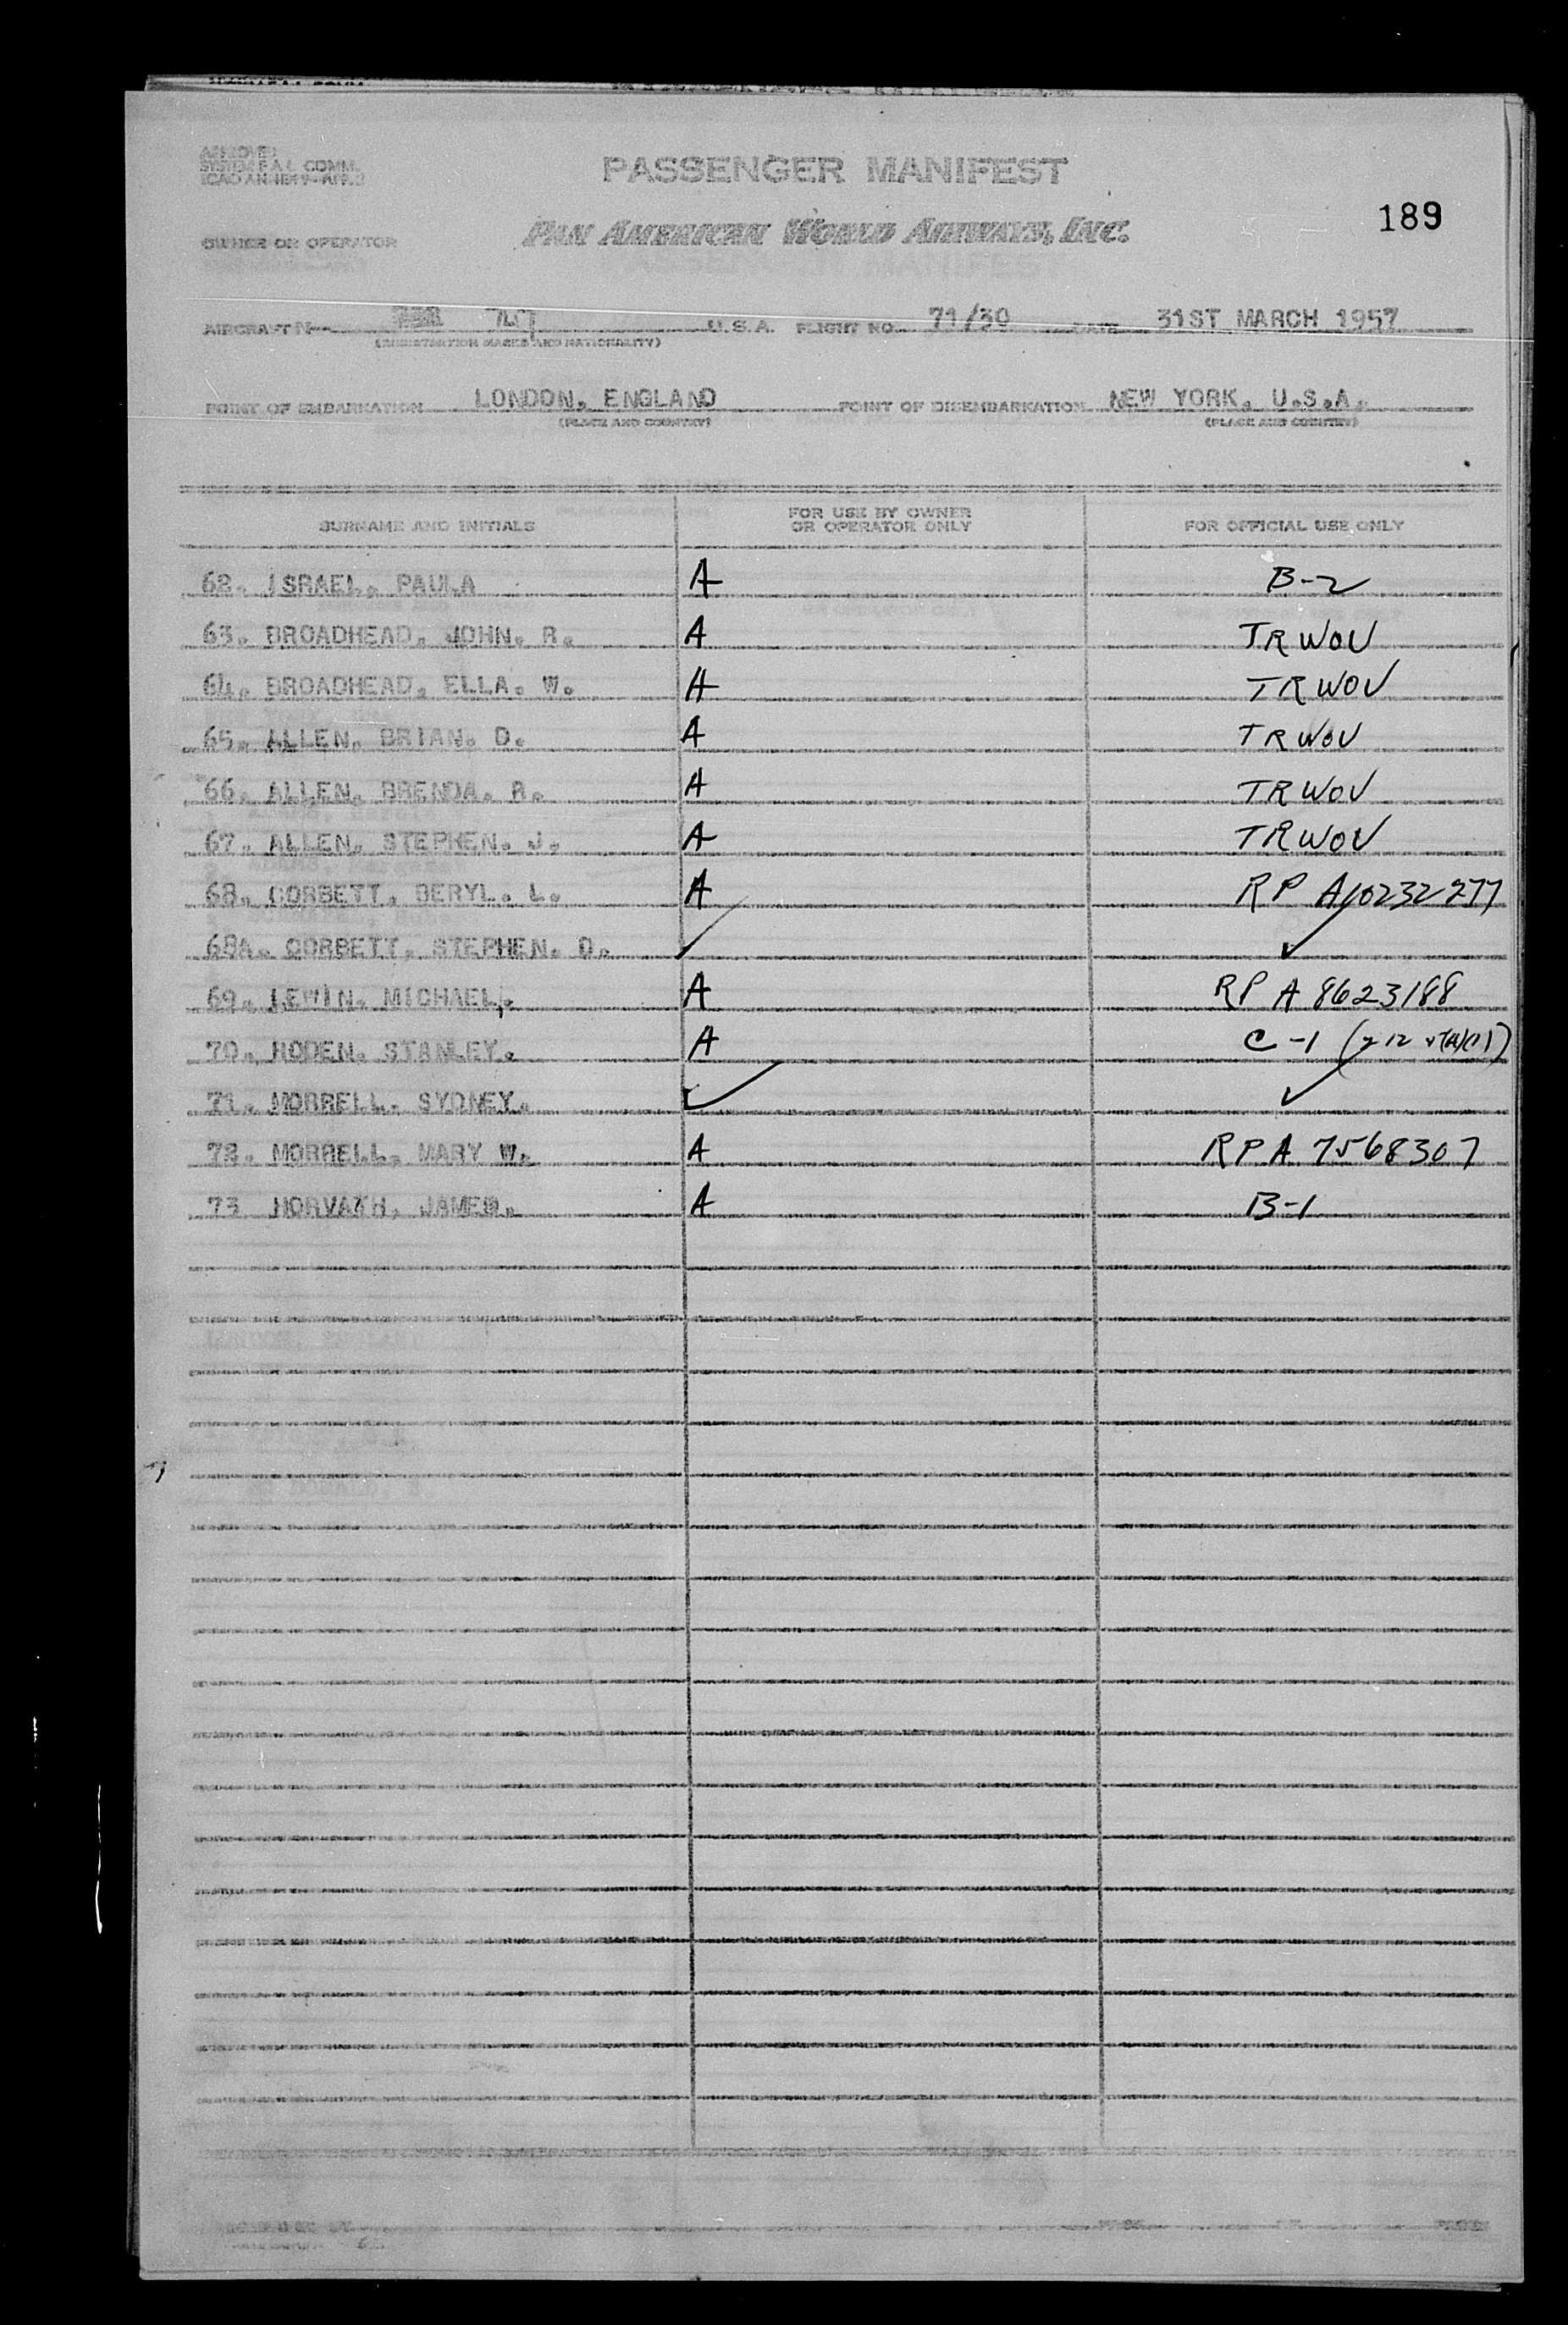 APPROVED
SYSTEM F.A.L. COMM.
ICAO ANNEX 9—APP.
PASSENGER MANIFEST
189
OWNER OR OPERATOR PAN AMERICAN WORLD AIRWAYS, INC.
AIRCRAFT N— U.S.A. FLIGHT NO. 71/30 DATE 31ST MARCH 1957
(REGISTRATION MARKS AND NATIONALITY)
POINT OF EMBARKATION LONDON, ENGLAND POINT OF DISEMBARKATION NEW YORK, U.S.A.
(PLACE AND COUNTRY) (PLACE AND COUNTRY)
SURNAME AND INITIALS FOR USE BY OWNER OR OPERATOR ONLY FOR OFFICIAL USE ONLY
62. ISRAEL, PAULA A B-2
63. BROADHEAD, JOHN. R. A TRWOV
64. BROADHEAD, ELLA. W. A TRWOV
65. ALLEN, BRIAN. D. A TRWOV
66. ALLEN, BRENDA. R. A TRWOV
67. ALLEN, STEPHEN. J. A TRWOV
68. CORBETT, BERYL. L. A RP A10232277
68A. CORBETT, STEPHEN. D. ✓ ✓
69. LEWIN, MICHAEL. A RP A 8623188
70. RODEN, STANLEY. A C-1
71. MORRELL, SYDNEY. ✓ ✓
72. MORRELL, MARY W. A RP A 7568307
73 HORVATH, A B-1